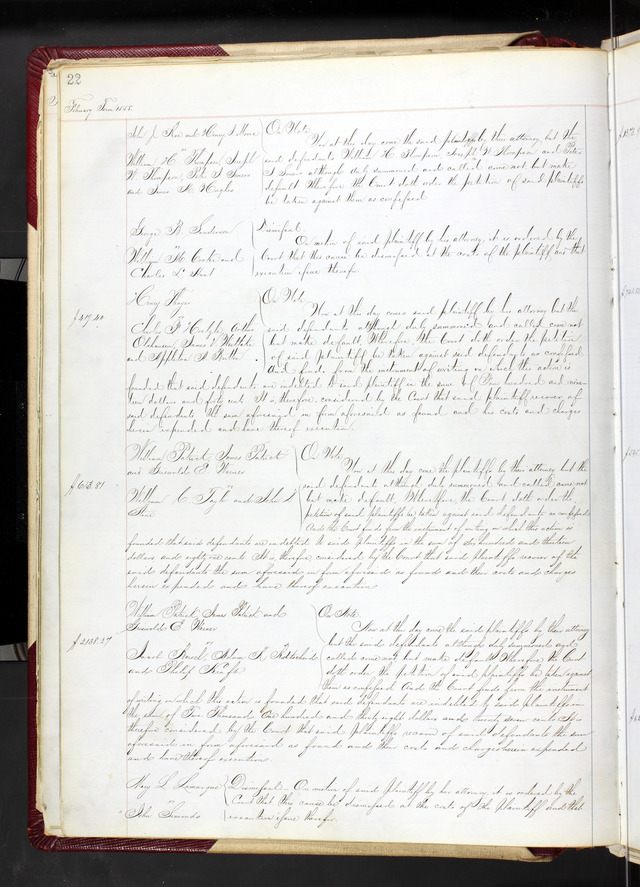 22
February Term 1855.
and Henry T
On Note
Now at this day come the said plaintiffs by their attorney, but the
said defendants William H. Thompson, Joseph W Thompson and Peter
although duly summoned and called come not but make
default Wherefore the Court doth order the petition of said plaintiffs
be taken against them as confessed
William H. Thompson, Joseph
W Thompson, Peter J
and James H. Hughes
George R.
Dismissed.
On motion of said plaintiff by his attorney, it is ordered by the
Court that this cause be dismissed at the costs of the plaintiff and that
execution issue therefor
William M. Cooke and
Charles L.
Henry
On Note
Now at this day comes said plaintiff by his attorney but the
said defendants although duly summoned and called come not
but make default, Wherefore the Court doth order the petition
of said plaintiff be taken against said defendants as confessed
And finds from the instrument of writing on which this action is
Charles F
James
and Appleton
founded that said defendants are indebted to said plaintiff in the sum of Five hundred and nine-
teen dollars and forty cents It is therefore considered by the Court that said plaintiff recover of
said defendants the sum aforesaid in form aforesaid as found and his costs and charges
herein expended and have thereof execution
William Patrick, James Patrick
and Griswold E. Warner
On Note
Now at this day come the plaintiffs by their attorney but the
said defendants although duly summoned and called come not
but make default, Wherefore, the Court doth order the
petition of said plaintiffs be taken against said defendants as confessed
And the Court finds from the instrument of writing on which this action is
$613.81
William C. and John S
founded that said defendants are indebted to said plaintiffs in the sum of Six hundred and thirteen
dollars and eighty one cents It is therefore considered by the Court that said plaintiffs recover of the
said defendants the sum aforesaid in form aforesaid as found and their costs and charges
herein expended and have thereof execution
William Patrick, James Patrick and
Griswold E Warner
On Note
Now at this day come the said plaintiffs by their attorney
but the said defendants although duly summoned and
called come not but make default Wherefore the Court
doth order the petition of said plaintiffs be taken against
them as confessed And the Court finds from the instrument
$2138.27
Jacob Adam
and Philip
of writing on which this action is founded that said defendants are indebted to said plaintiffs in
the sum of Two Thousand One hundred and thirty eight dollars and twenty seven cents It is
therefore considered by the Court that said plaintiffs recover of said defendants the sum
aforesaid in form aforesaid as found and their costs and charges herein expended
and have thereof execution.
Mary L Lamarque
Dismissed. On motion of said plaintiff by her attorney, it is ordered by the
Court that this cause be dismissed at the costs of the plaintiff and that
execution issue therefor
John Simonds